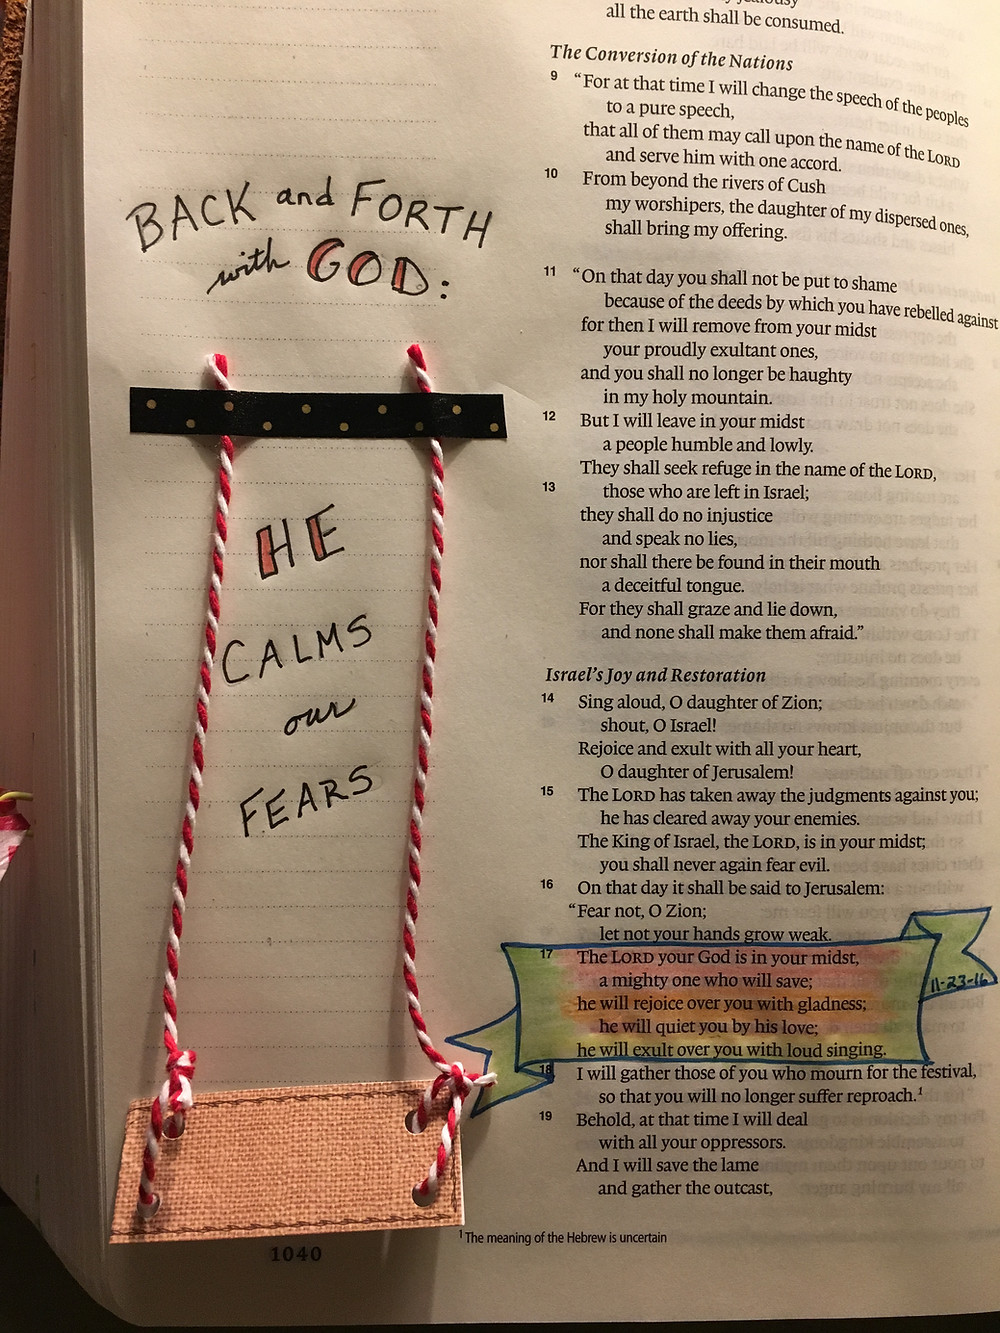 BACK and FORTH
with GOD:
HE
CALMS
our
FEARS
1040
all the earth shall be consumed.
The Conversion of the Nations
9 “For at that time I will change the speech of the peoples
to a pure speech,
that all of them may call upon the name of the LORD
and serve him with one accord.
10 From beyond the rivers of Cush
my worshipers, the daughter of my dispersed ones,
shall bring my offering.
11 “On that day you shall not be put to shame
because of the deeds by which you have rebelled against
for then I will remove from your midst
your proudly exultant ones,
and you shall no longer be haughty
in my holy mountain.
12 But I will leave in your midst
a people humble and lowly.
They shall seek refuge in the name of the LORD,
13 those who are left in Israel;
they shall do no injustice
and speak no lies,
nor shall there be found in their mouth
a deceitful tongue.
For they shall graze and lie down,
and none shall make them afraid.”
Israel’s Joy and Restoration
14 Sing aloud, O daughter of Zion;
shout, O Israel!
Rejoice and exult with all your heart,
O daughter of Jerusalem!
15 The LORD has taken away the judgments against you;
he has cleared away your enemies.
The King of Israel, the LORD, is in your midst;
you shall never again fear evil.
16 On that day it shall be said to Jerusalem:
“Fear not, O Zion;
let not your hands grow weak.
17 The LORD your God is in your midst,
a mighty one who will save;
11-23-16
he will rejoice over you with gladness;
he will quiet you by his love;
he will exult over you with loud singing.
18 I will gather those of you who mourn for the festival,
so that you will no longer suffer reproach.1
19 Behold, at that time I will deal
with all your oppressors.
And I will save the lame
and gather the outcast,
1 The meaning of the Hebrew is uncertain